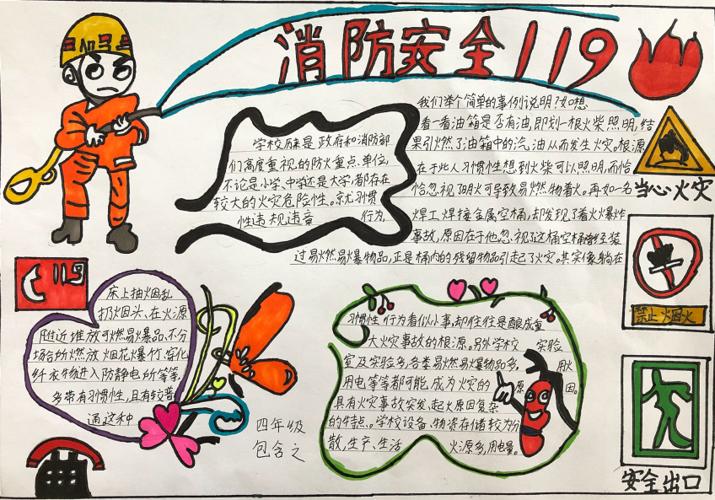 消防安全119
学校历来是政府和消防部
们高度重视的防火重点单位,
不论是小学、中学还是大学,都存在
较大的火灾危险性。就习惯
性违规违章 行为,
我们举个简单的事例说明?如想
看一看油箱是否有油,即划一根火柴照明,结
果引燃了油箱中的汽油从而发生火灾。根源
在于此人习惯性想到火柴可以照明,而恰
恰忽视了明火可导致易燃物着火。再如一名
焊工,焊接金属空桶,却发现了着火爆炸
事故,原因在于他忽视了这桶空桶曾经装
过易燃易爆物品,正是桶内的残留物品引起了火灾。其实像躺在
当心火灾
禁止烟火
安全出口
119
床上抽烟乱
扔烟头、在火源
附近堆放可燃易爆品、不分
场合燃放烟花爆竹、穿化
纤衣物进入防静电所等等,
多带有习惯性,且有较普
遍这种
四年级
包含之
习惯性行为看似小事,却往往是酿成重
大火灾事故的根源。另外学校实验
室及实验多,各类易燃易爆物品多,用火
用电等等都可能成为火灾的原因。
具有火灾事故突发、起火原因复杂
的特点。学校设备、物资存储较为分
散,生产、生活火源多,用电量。